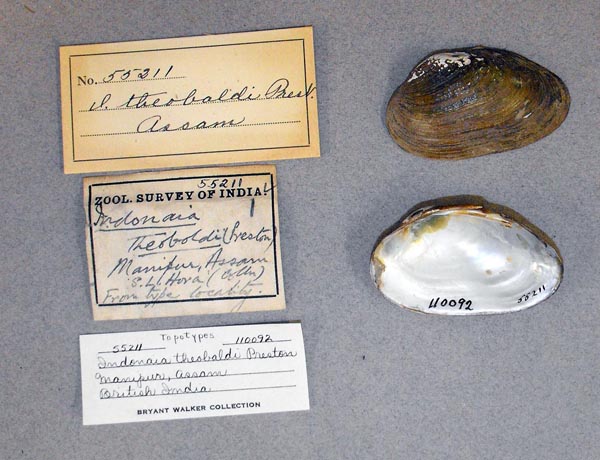 No. 55211
I. theobaldi Prest.
Assam
55211
ZOOL. SURVEY OF INDIA.
1
Indonaia
Theobaldi (Preston)
Manipur, Assam
S. L. Hora (Colln)
From type locality.
Topotypes
55211 110092
Indonaia theobaldi Preston
Manipur, Assam
British India
BRYANT WALKER COLLECTION
110092
55211